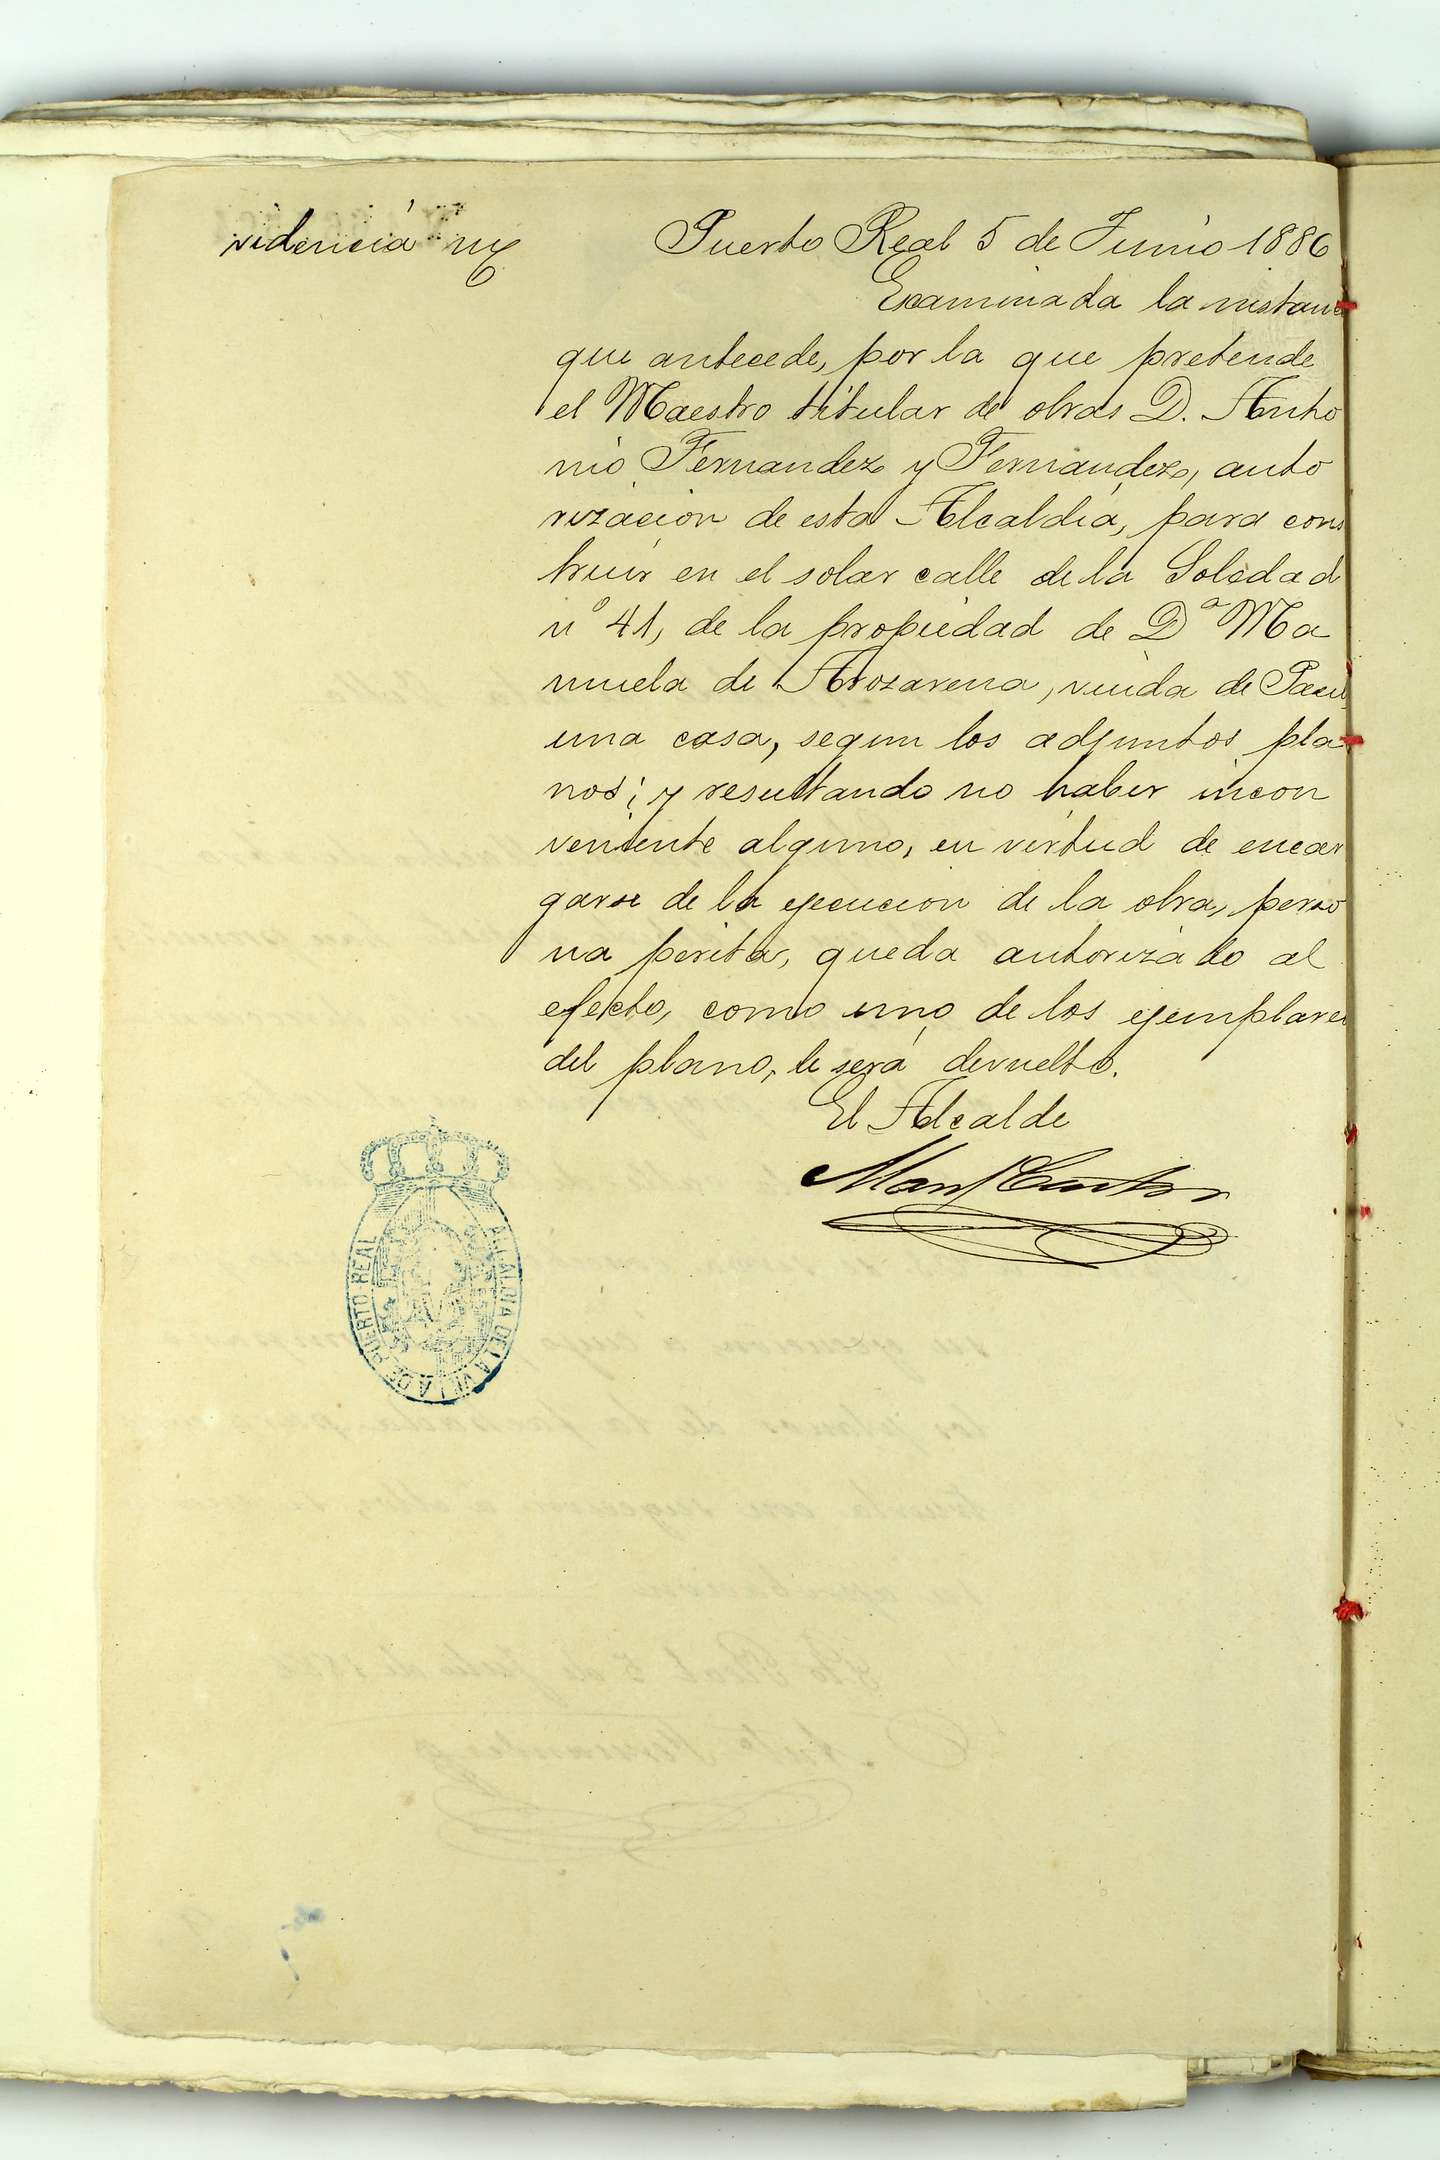 videncia
Puerto Real 5 de Junio 1886
Examinada la instanc
que antecede, por la que pretende
el Maestro titular de obras D. Anto
nio Fernandez y Fernandez, auto
rización de esta Alcaldía, para cons
truir en el solar calle de la Soledad
nº 41, de la propiedad de Dª Ma
nuela de Arozarena, viuda de
una casa, segun los adjuntos pla
nos; y resultando no haber incon
veniente alguno, en virtud de encar
garse de la ejecucion de la obra, perso
na perita, queda autorizado al
efecto, como uno de los ejemplares
del plano, le será devuelto.
El Alcalde
ALCALDIA DE LA VILLA DE PUERTO REAL